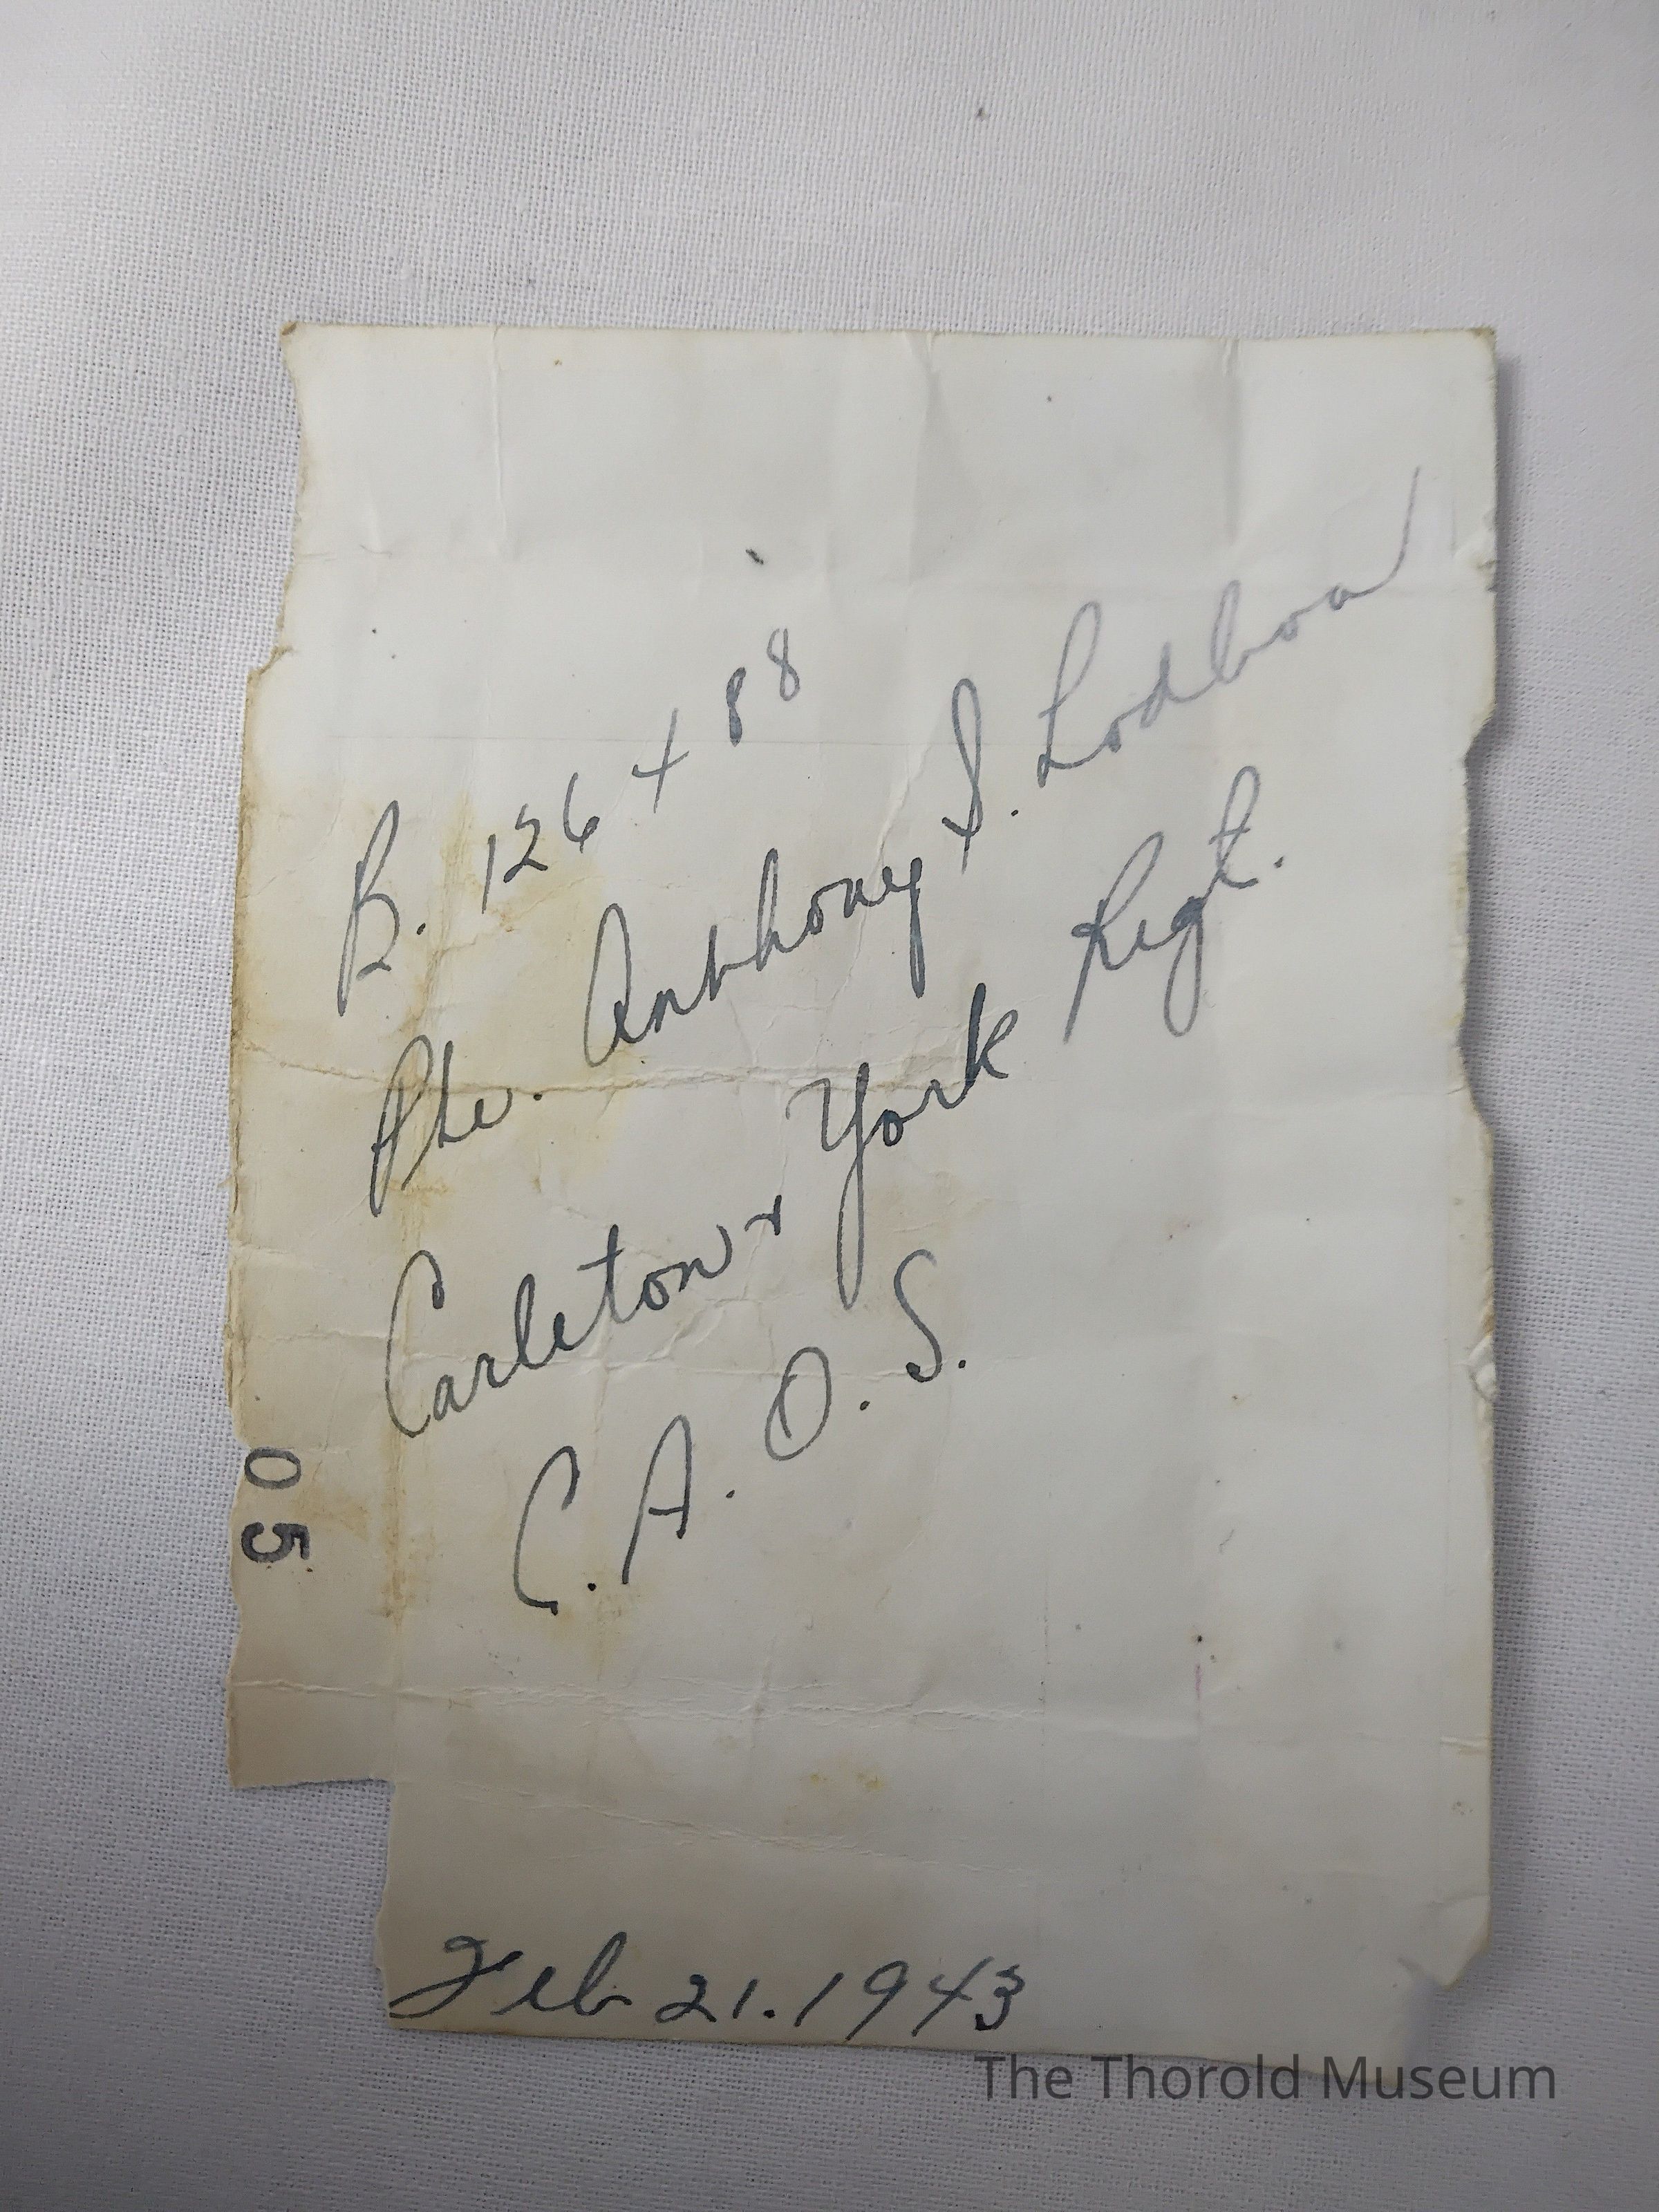 B. 126488
Pte. Anthony S. Lodboa
Carleton & York Regt.
C. A. O. S.
05
Feb 21. 1943
The Thorold Museum